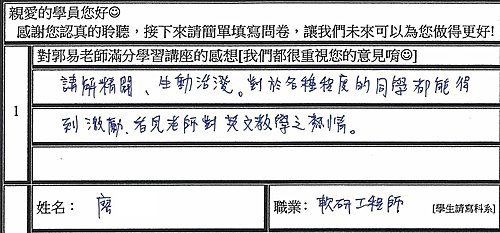 親愛的學員您好☺
感謝您認真的聆聽，接下來請簡單填寫問卷，讓我們未來可以為您做得更好!
對郭易老師滿分學習講座的感想[我們都很重視您的意見唷☺]
1
講解精闢、生動活潑。對於各種程度的同學都能得
到激勵、看見老師對英文教學之熱情。
姓名： 廖
職業： 軟研工程師 [學生請寫科系]